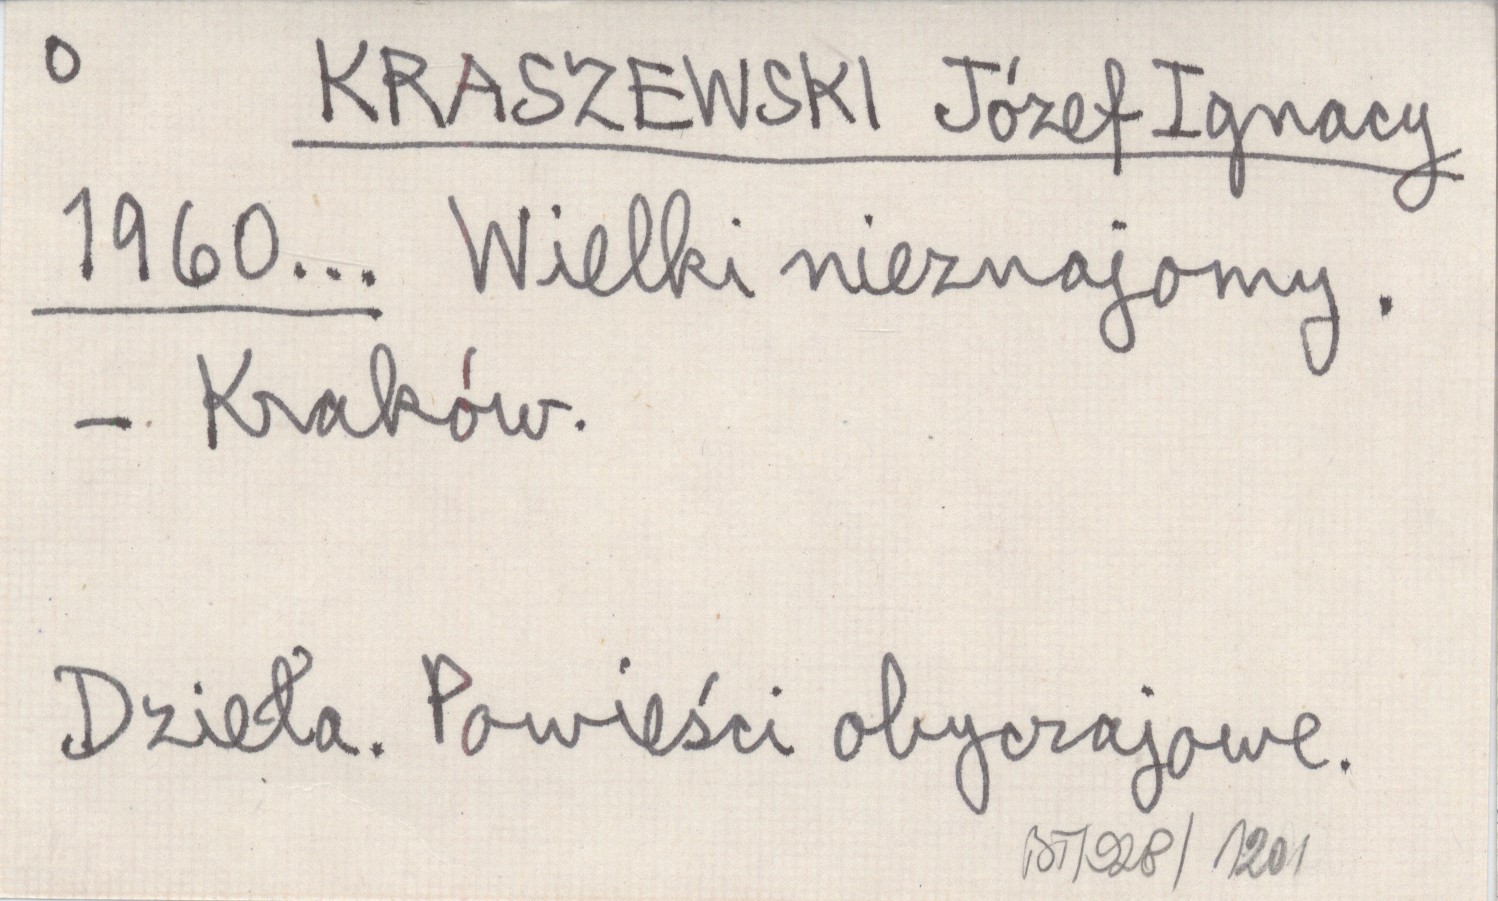 o KRASZEWSKI Józef Ignacy
1960... Wielki nieznajomy.
- Kraków.
Dzieła. Powieści obyczajowe.
BT/928/1201